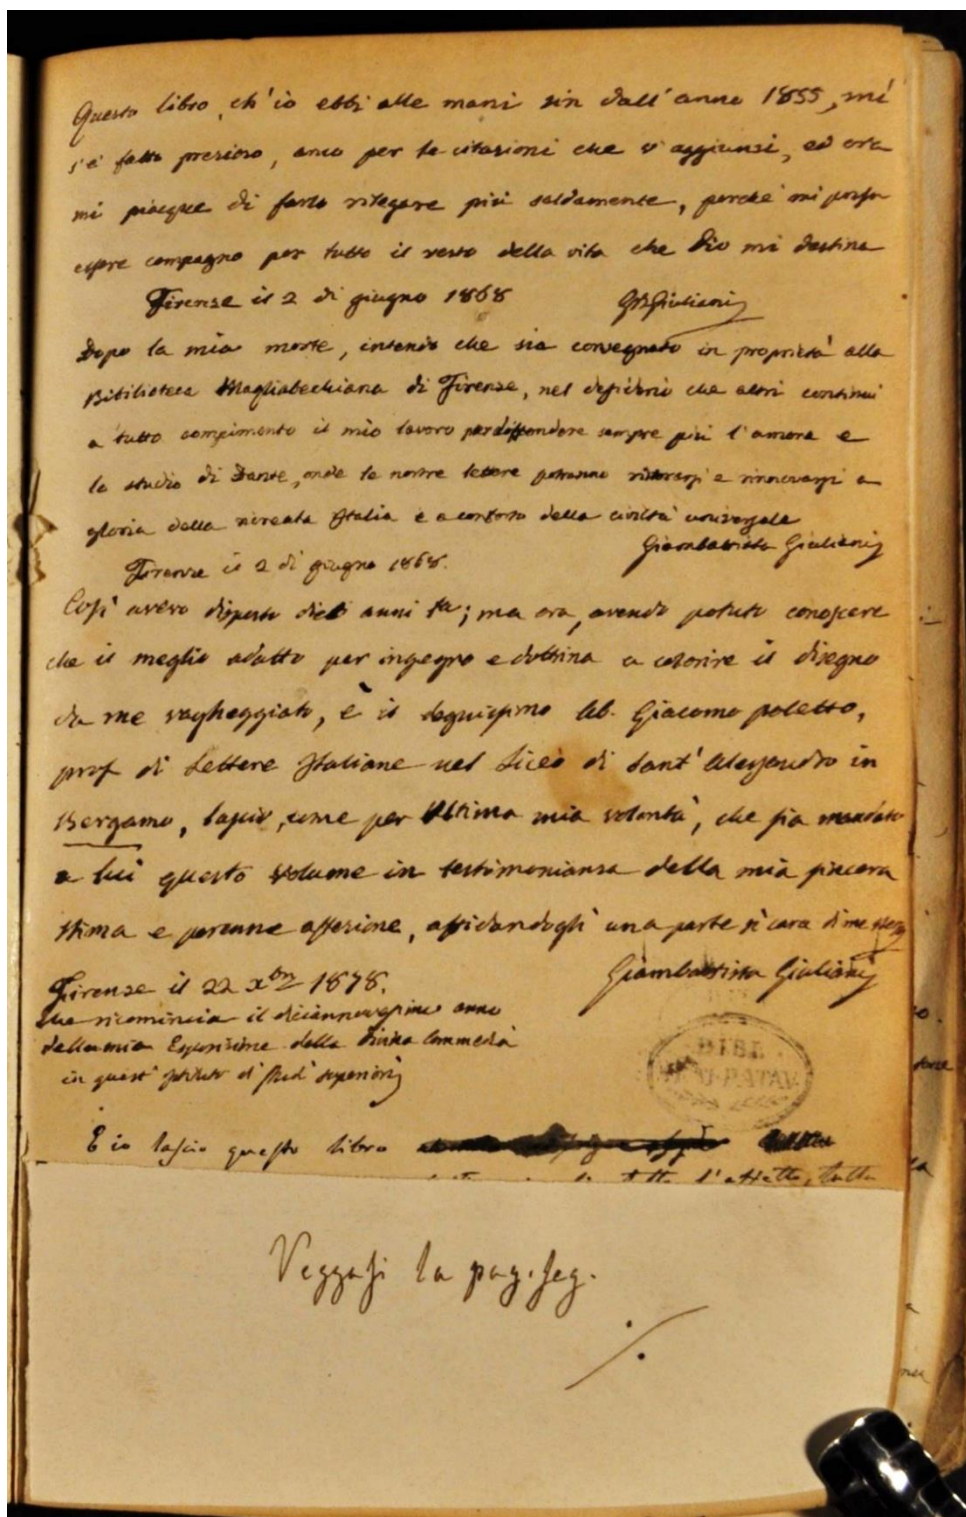 Questo libro, ch'io ebbi alle mani sin dall'anno 1855, mi
s'è fatto prezioso, anco per le citazioni che v'aggiunsi, ed ora
mi piacque di farlo rilegare più saldamente, perchè mi possa
essere compagno per tutto il resto della vita che Dio mi destina
Firenze il 2 di giugno 1868 GBGiuliani
Dopo la mia morte, intendo che sia consegnato in proprietà alla
Biblioteca Magliabechiana di Firenze, nel desiderio che altri continui
a tutto compimento il mio lavoro per diffondere sempre più l'amore e
lo studio di Dante, onde le nostre lettere potranno ristorarsi e rinnovarsi a
gloria della ricreata Italia e a conforto della civiltà universale
Giambattista Giuliani
Firenze il 2 di giugno 1868.
Così avevo disposto dieci anni fa; ma ora, avendo potuto conoscere
che il meglio adatto per ingegno e dottrina a colorire il disegno
da me vagheggiato, è il degnissimo Ab. Giacomo Poletto,
prof di Lettere Italiane nel Liceo di Sant'Alessandro in
Bergamo, lascio, come per ultima mia volontà, che sia mandato
a lui questo volume in testimonianza della mia sincera
stima e perenne affezione, affidandogli una parte sì cara di me stesso
Giambattista Giuliani
Firenze il 22 Xbre 1878.
che ricomincia il diciannovesimo anno
della mia Esposizione della Divina Commedia
in quest'Istituto di Studi superiori
E io lascio questo libro
tutto l'affetto, tutta
Veggasi la pag. seg.